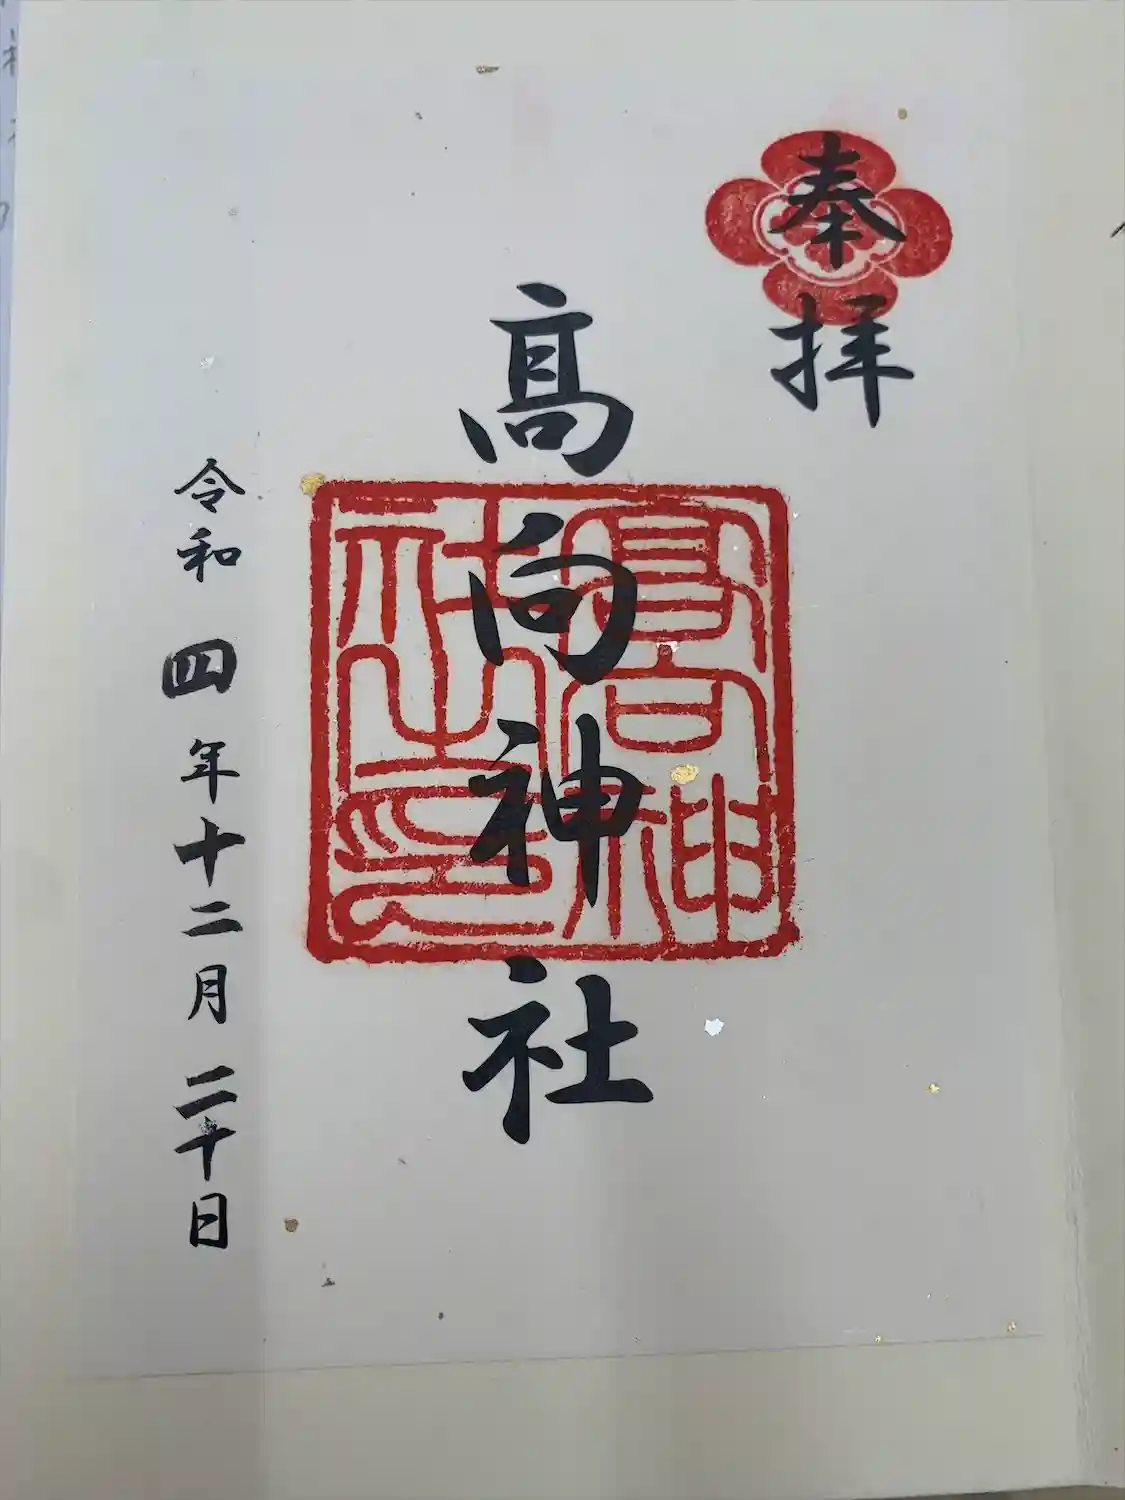 奉拝
髙向神社
髙向神社之印
令和四年十二月二十日